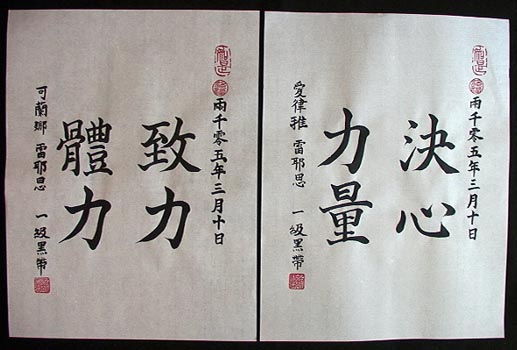 兩千零五年三月十日
決心
力量
愛律雅 雷耶思 一級黑帶
兩千零五年三月十日
致力
體力
可蘭娜 雷耶思 一級黑帶